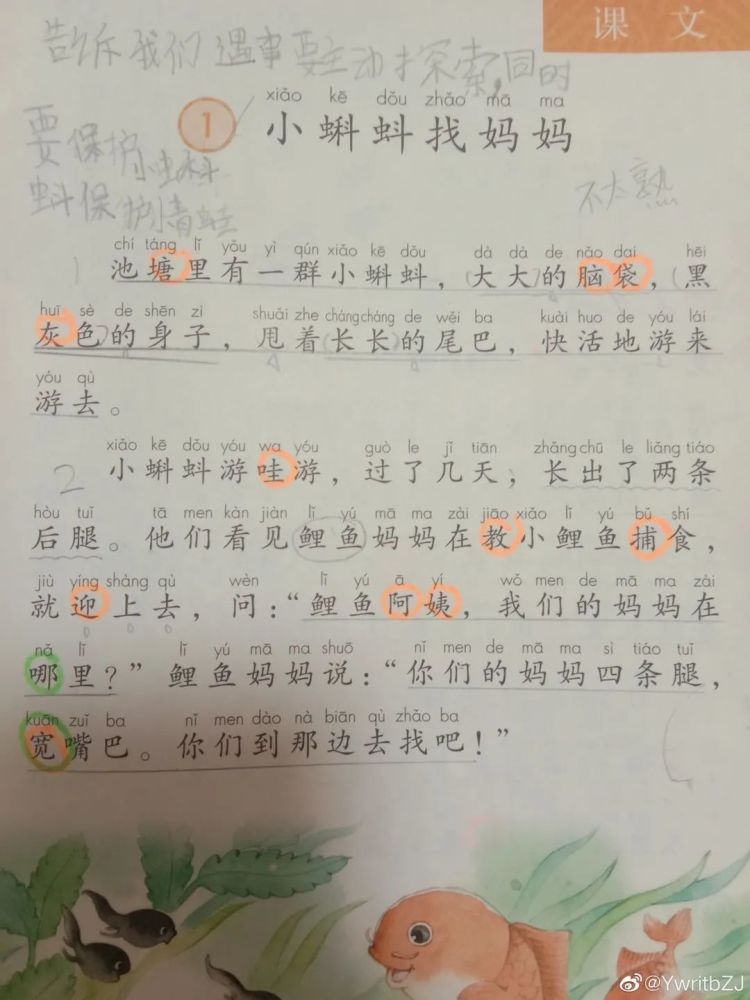 课文
告诉我们遇事要主动扌探索,同时
xiǎo kē dǒu zhǎo mā ma
1 小蝌蚪找妈妈
要保护小虫科
蚪保护小青蛙
不太熟
chí táng lǐ yǒu yì qún xiǎo kē dǒu dà dà de nǎo dai hēi
1 池塘里有一群小蝌蚪,大大的脑袋,(黑
huī sè de shēn zi shuǎi zhe cháng cháng de wěi ba kuài huo de yóu lái
灰色)的身子,甩着(长长)的尾巴,快活地游来
yóu qù
游去。
xiǎo kē dǒu yóu wa yóu guò le jǐ tiān zhǎng chū le liǎng tiáo
2 小蝌蚪游哇游,过了几天,长出了两条
hòu tuǐ tā men kàn jiàn lǐ yú mā ma zài jiāo xiǎo lǐ yú bǔ shí
后腿。他们看见鲤鱼妈妈在教小鲤鱼捕食,
jiù yíng shàng qù wèn lǐ yú ā yí wǒ men de mā ma zài
就迎上去,问:“鲤鱼阿姨,我们的妈妈在
nǎ lǐ lǐ yú mā ma shuō nǐ men de mā ma sì tiáo tuǐ
哪里?”鲤鱼妈妈说:“你们的妈妈四条腿,
kuān zuǐ ba nǐ men dào nà biān qù zhǎo ba
宽嘴巴。你们到那边去找吧!”
@YwritbZJ